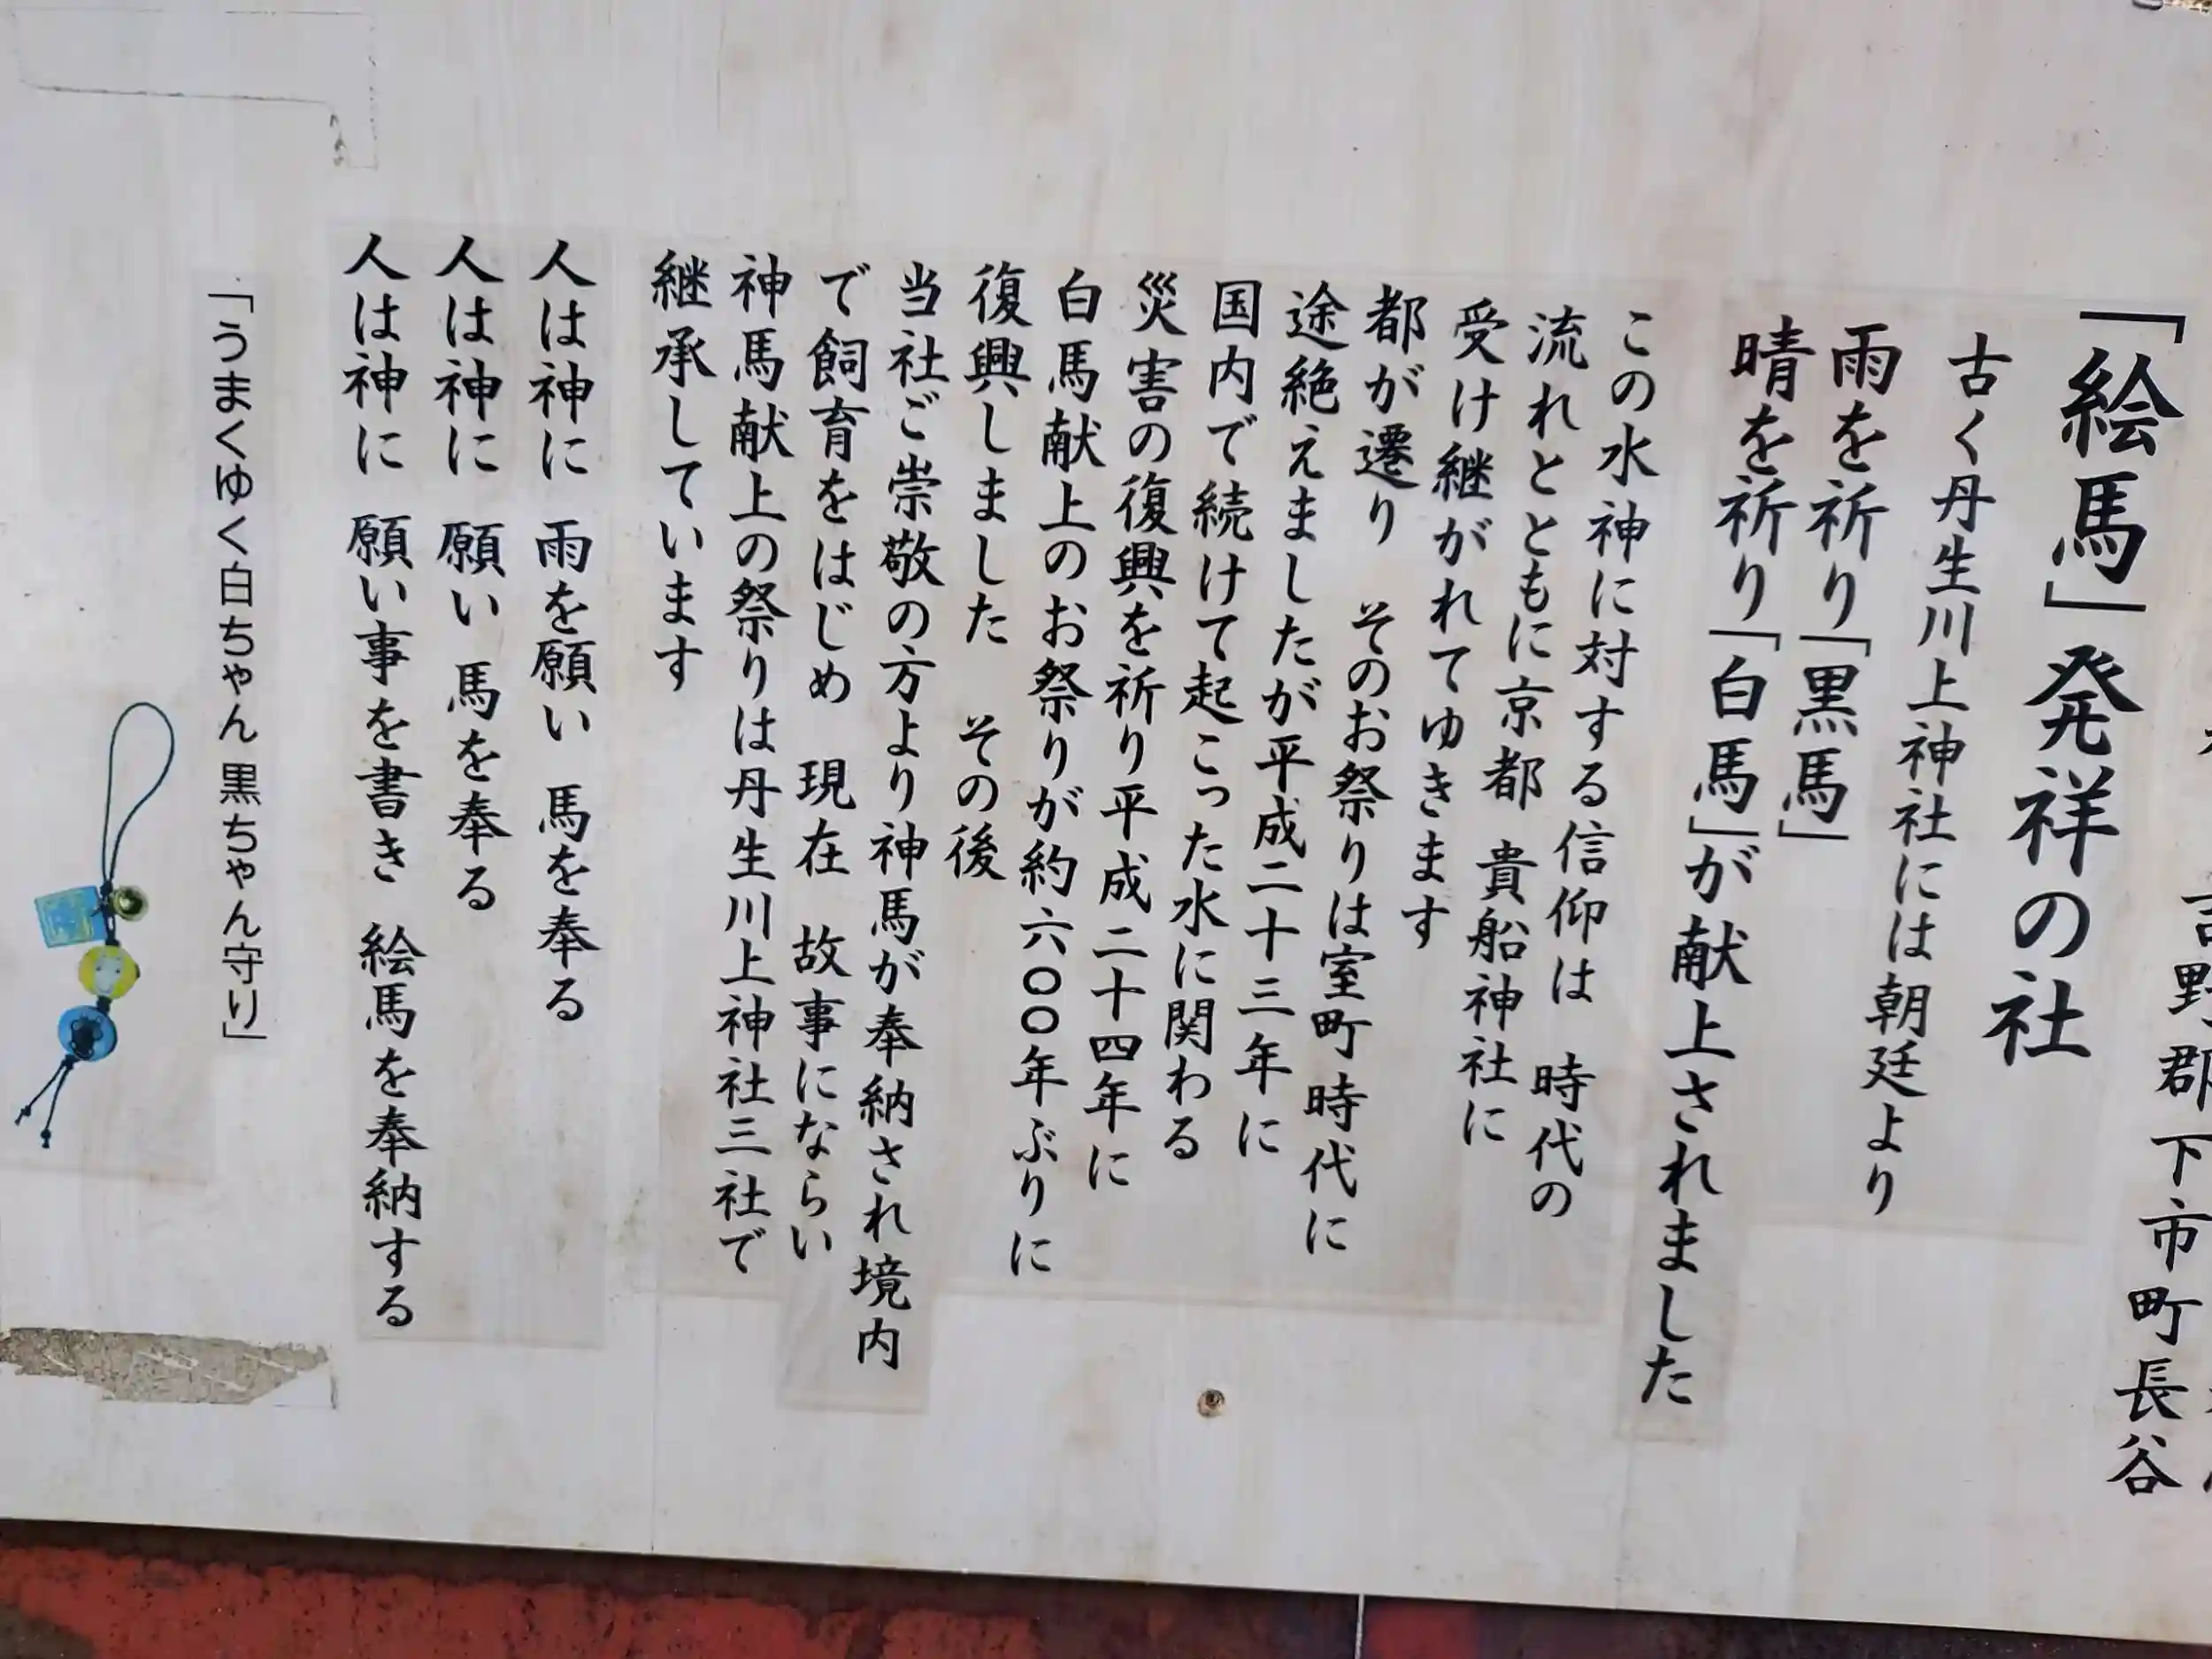 吉野郡下市町長谷
「絵馬」発祥の社
古く丹生川上神社には朝廷より
雨を祈り「黒馬」
晴を祈り「白馬」が献上されました
この水神に対する信仰は 時代の
流れとともに京都 貴船神社に
受け継がれてゆきます
都が遷り そのお祭りは室町時代に
途絶えましたが平成二十三年に
国内で続けて起こった水に関わる
災害の復興を祈り平成二十四年に
白馬献上のお祭りが約六〇〇年ぶりに
復興しました その後
当社ご崇敬の方より神馬が奉納され境内
で飼育をはじめ 現在 故事にならい
神馬献上の祭りは丹生川上神社三社で
継承しています
人は神に 雨を願い 馬を奉る
人は神に 願い 馬を奉る
人は神に 願い事を書き 絵馬を奉納する
「うまくゆく白ちゃん黒ちゃん守り」